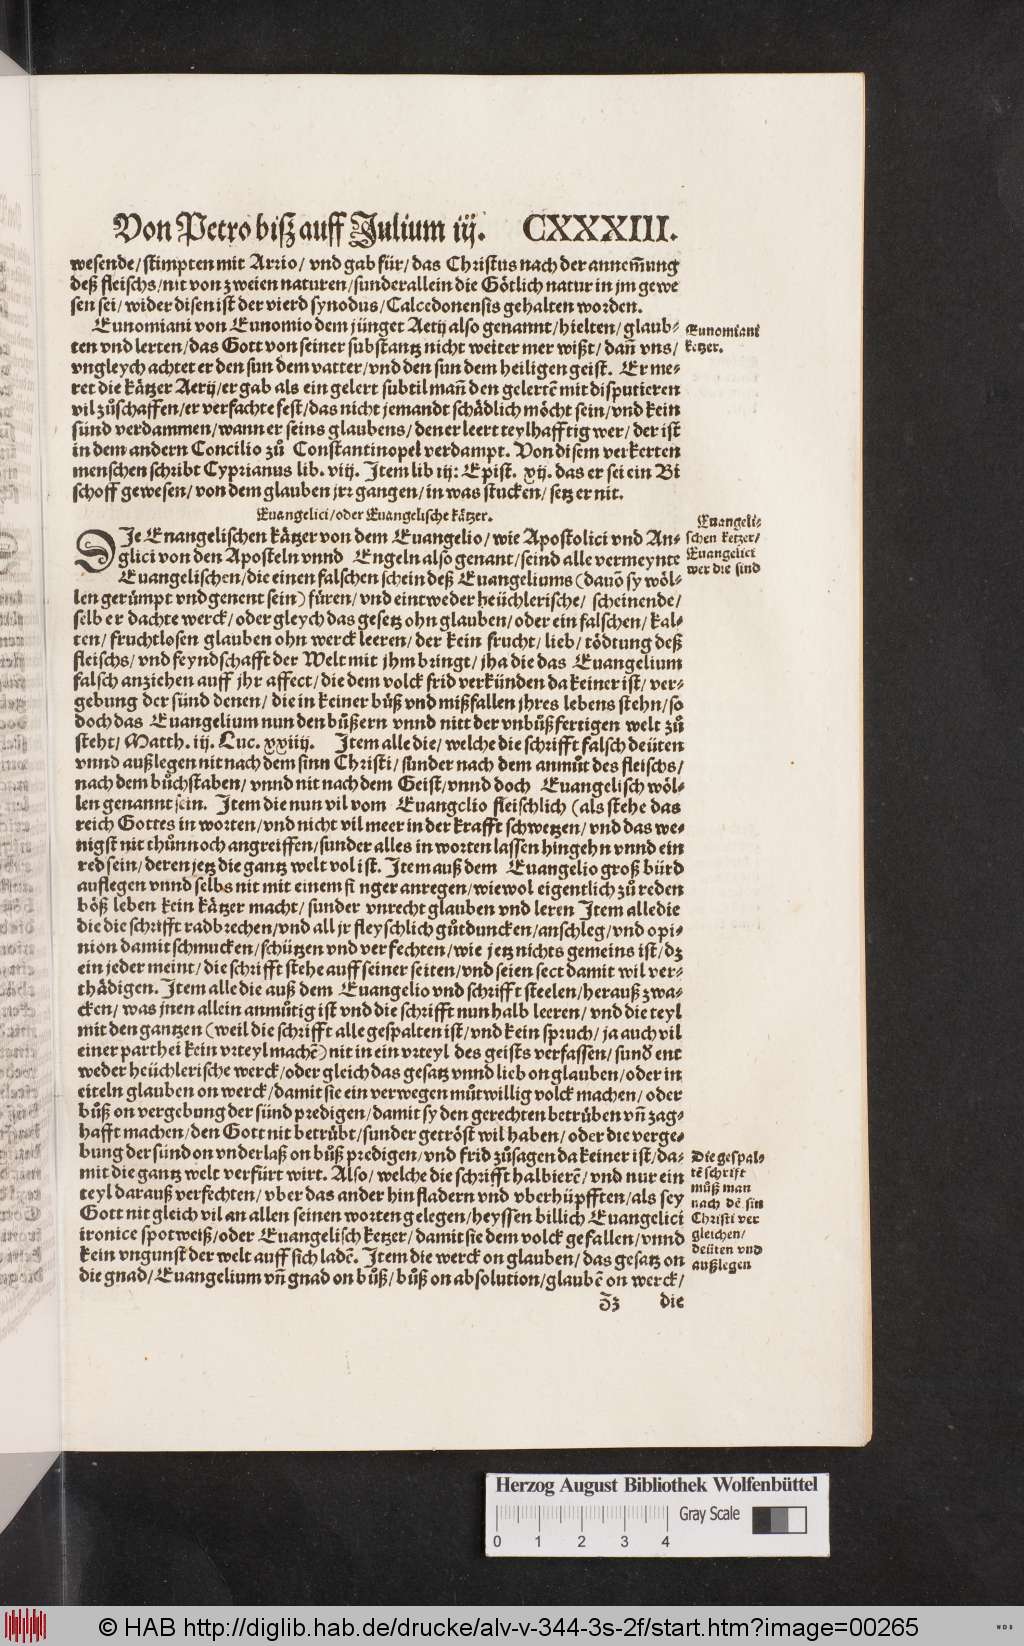 Von Petro biß auff Julium iij. CXXXIII.
wesende/ stimpten mit Arrio/ vnd gab für/ das Christus nach der annem̃ung
deß fleischs/ nit von zweien naturen/ sunder allein die Götlich natur in jm gewe
sen sei/ wider disen ist der vierd synodus/ Calcedonensis gehalten worden.
Eunomiani von Eunomio dem jünger Aetij also genannt/ hielten/ glaub-
ten vnd lerten/ das Gott von seiner substantz nicht weiter mer wißt/ dañ vns/
vngleych achtet er den sun dem vatter/ vnd den sun dem heiligen geist. Er me-
ret die kätzer Aetij/ er gab als ein gelert subtil mañ den gelertẽ mit disputieren
vil zůschaffen/ er verfachte fest/ das nicht jemandt schädlich möcht sein/ vnd kein
sünd verdammen/ wann er seins glaubens/ den er leert teylhafftig wer/ der ist
in dem andern Concilio zů Constantinopel verdampt. Von disem verkerten
menschen schribt Cyprianus lib. viij. Item lib iij: Epist. xij. das er sei ein Bi
schoff gewesen/ von dem glauben jrr gangen/ in was stucken/ setz er nit.
Eunomiani
ketzer.
Euangelici/ oder Euangelische kätzer.
DJe Enangelischen kätzer von dem Euangelio/ wie Apostolici vnd An-
glici von den Aposteln vnnd Engeln also genant/ seind alle vermeynte
Euangelischen/ die einen falschen schein deß Euangeliums (dauõ sy wöl-
len gerümpt vnd genent sein) füren/ vnd eintweder heüchlerische/ scheinende/
selb er dachte werck/ oder gleych das gesetz ohn glauben/ oder ein falschen/ kal-
ten/ fruchtlosen glauben ohn werck leeren/ der kein frucht/ lieb/ tödtung deß
fleischs/ vnd feyndschafft der Welt mit jhm bringt/ jha die das Euangelium
falsch anziehen auff jhr affect/ die dem volck frid verkünden da keiner ist/ ver-
gebung der sünd denen/ die in keiner bůß vnd mißfallen jhres lebens stehn/ so
doch das Euangelium nun den bůßern vnnd nitt der vnbůßfertigen welt zů
steht/ Matth. iij. Luc. xxiiij. Item alle die/ welche die schrifft falsch deüten
vnnd außlegen nit nach dem sinn Christi/ sunder nach dem anmůt des fleischs/
nach dem bůchstaben/ vnnd nit nach dem Geist/ vnnd doch Euangelisch wöl-
len genannt sein. Item die nun vil vom Euangelio fleischlich (als stehe das
reich Gottes in worten/ vnd nicht vil meer in der krafft schwetzen/ vnd das we-
nigst nit thůn noch angreiffen/ sunder alles in worten lassen hingehn vnnd ein
red sein/ deren jetz die gantz welt vol ist. Item auß dem Euangelio groß bürd
auflegen vnnd selbs nit mit einem finger anregen/ wiewol eigentlich zů reden
böß leben kein kätzer macht/ sunder vnrecht glauben vnd leren Item alle die
die die schrifft radbrechen/ vnd all jr fleyschlich gůtduncken/ anschleg/ vnd opi-
nion damit schmucken/ schützen vnd verfechten/ wie jetz nichts gemeins ist/ dz
ein jeder meint/ die schrifft stehe auff seiner seiten/ vnd seien sect damit wil ver-
thädigen. Item alle die auß dem Euangelio vnd schrifft steelen/ herauß zwa-
cken/ was jnen allein anmůtig ist vnd die schrifft nun halb leeren/ vnd die teyl
mit den gantzen (weil die schrifft alle gespalten ist/ vnd kein spruch/ ja auch vil
einer parthei kein vrteyl machẽ) nit in ein vrteyl des geists verfassen/ sunð ent
weder heüchlerische werck/ oder gleich das gesatz vnnd lieb on glauben/ oder in
eiteln glauben on werck/ damit sie ein verwegen můtwillig volck machen/ oder
bůß on vergebung der sünd predigen/ damit sy den gerechten betrüben vñ zag-
hafft machen/ den Gott nit betrübt/ sunder getröst wil haben/ oder die verge-
bung der sünd on vnderlaß on bůß predigen/ vnd frid zůsagen da keiner ist/ da-
mit die gantz welt verfürt wirt. Also/ welche die schrifft halbierẽ/ vnd nur ein
teyl darauß verfechten/ vber das ander hin fladern vnd vberhüpfften/ als sey
Gott nit gleich vil an allen seinen worten gelegen/ heyssen billich Euangelici
ironice spotweiß/ oder Euangelisch ketzer/ damit sie dem volck gefallen/ vnnd
kein vngunst der welt auff sich ladẽ. Item die werck on glauben/ das gesatz on
die gnad/ Euangelium vñ gnad on bůß/ bůß on absolution/ glaubẽ on werck/
Euangeli-
schen ketzer/
Euangelici
wer die sind
Die gespal-
tẽ schrift
můß man
nach dẽ sin
Christi ver
gleichen/
deüten vnd
außlegen
die
Herzog August Bibliothek Wolfenbüttel
Gray Scale
0 1 2 3 4
© HAB http://diglib.hab.de/drucke/alv-v-344-3s-2f/start.htm?image=00265